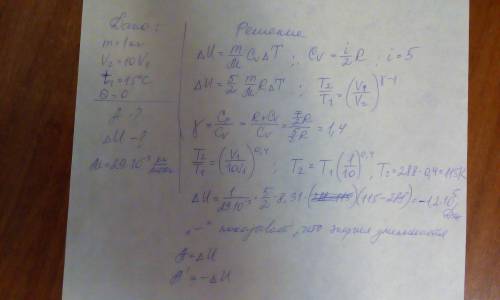 Дано:
m = 1 кг
V₂ = 10 V₁
t₁ = 15°C
Q = 0
A - ?
ΔU - ?
M = 29·10⁻³ кг/моль
Решение
ΔU = m/M Cv ΔT ; Cv = i/2 R ; i = 5
ΔU = 5/2 m/M R ΔT ; T₂/T₁ = (V₁/V₂)^(γ-1)
γ = Cp/Cv = (R+Cv)/Cv = (7/2 R)/(5/2 R) = 1,4
T₂/T₁ = (V₁/10V₁)^0,4 ; T₂ = T₁(1/10)^0,4 , T₂ = 288·0,4 = 115K
ΔU = 1/(29·10⁻³) · 5/2 · 8,31 · (115 - 288) = -1,2·10⁵ Дж
"-" показывает, что энергия уменьшается
A = ΔU
A' = -ΔU